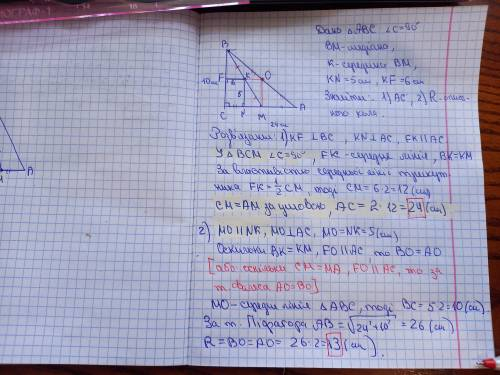 Дано △ABC ∠C=90°
BM-медіана,
K-середина BM,
KN=5см, KF=6см
Знайти: 1) AC, 2) R-описа-
ного кола.
B
F K O
10см 6
5
C N M A
24см
Розв'язання: 1) KF⊥BC, KN⊥AC, FK||AC
У △BCM ∠C=90°, FK-середня лінія, BK=KM
За властивістю середньої лінії трикут
ника FK=1/2 CM, тоді CM=6·2=12(см)
CM=AM за умовою, AC=2·12=24(см)
2) MO||NK, MO⊥AC, MO=NK=5(см)
Оскільки BK=KM, FO||AC, то BO=AO
[або оскільки CM=MA, FO||AC, то за
т. Фалеса AO=BO]
MO-середня лінія △ABC, тоді BC=5·2=10(см)
За т. Піфагора AB=√24²+10²=26(см)
R=BO=AO=26:2=13(см).
A